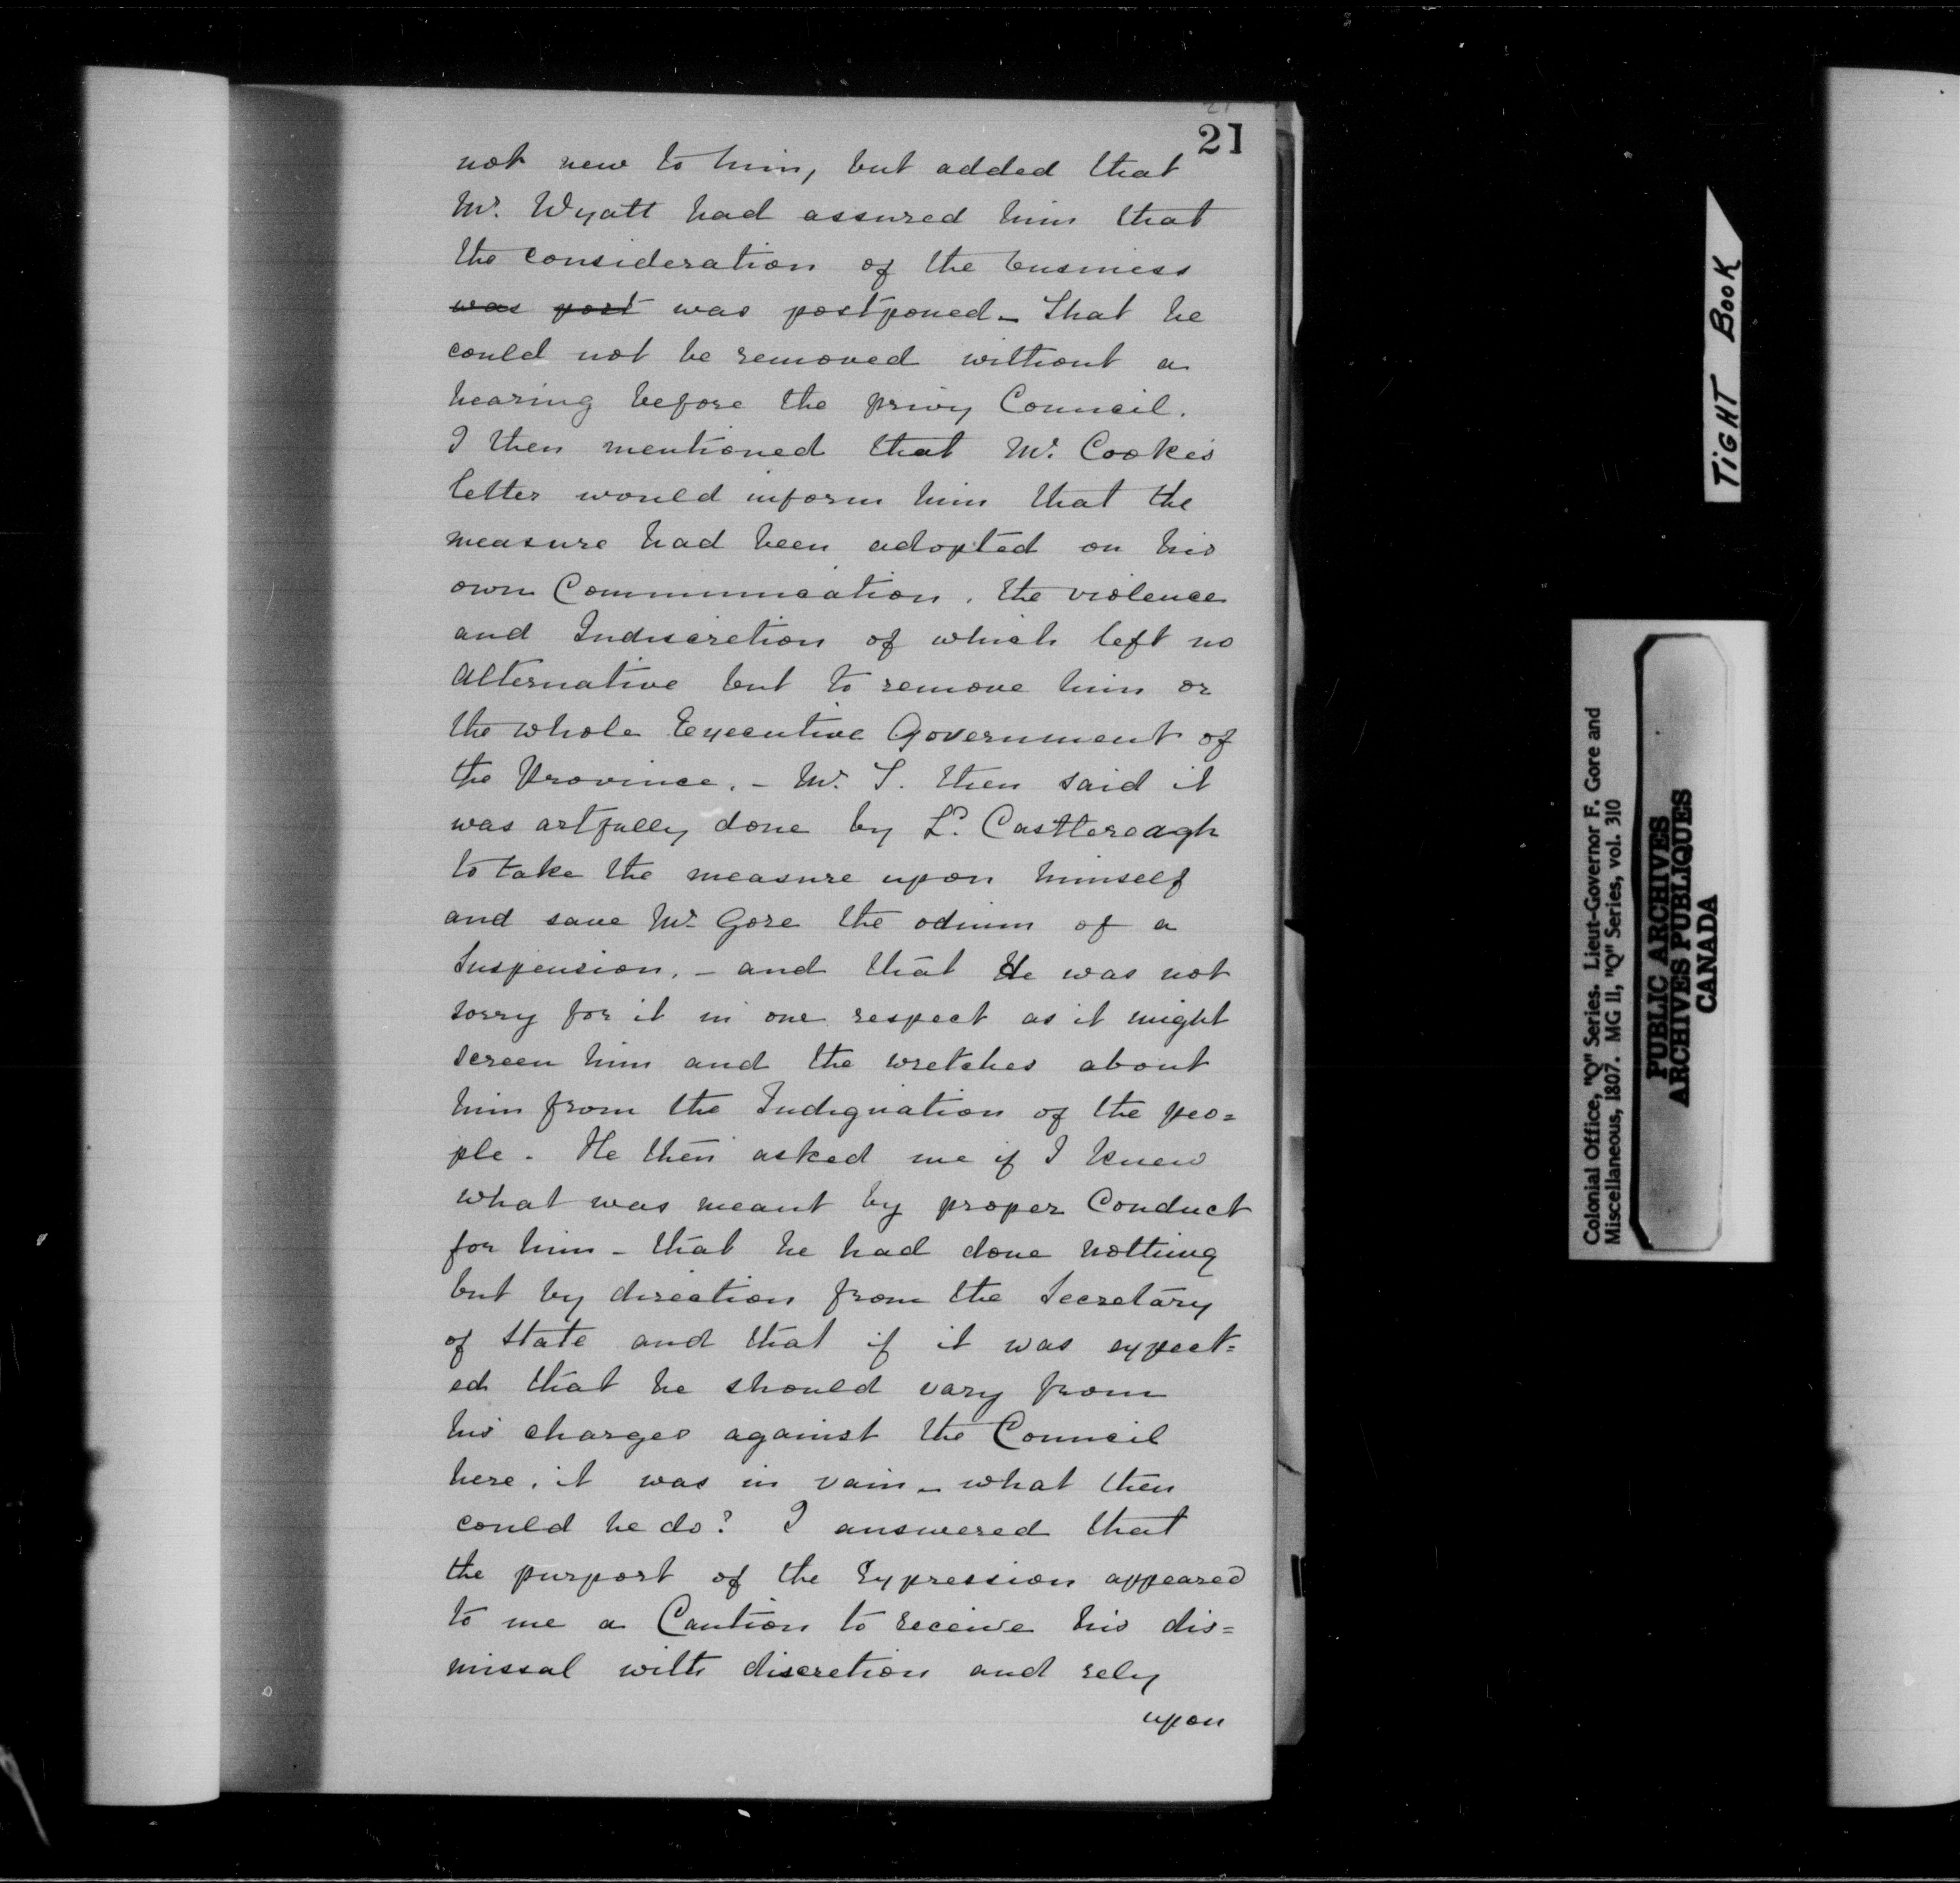 21
not new to him, but added that
Mr. Wyatt had assured him that
the consideration of the business
was post was postponed – That he
could not be removed without a
hearing before the privy Council.
I then mentioned that Mr. Cooke's
letter would inform him that the
measure had been adopted on his
own Communication, the violence
and Indiscretion of which left no
alternative but to remove him or
the whole Executive Government of
the Province. – Mr. T. then said it
was artfully done by Ld. Castlereagh
to take the measure upon himself
and save Mr. Gore the odium of a
Suspension, – and that He was not
sorry for it in one respect as it might
screen him and the wretches about
him from the Indignation of the peo=
ple. He then asked me if I knew
what was meant by proper Conduct
for him – that he had done nothing
but by direction from the Secretary
of State and that if it was expect=
ed that he should vary from
his charges against the Council
here, it was in vain – what then
could he do? I answered that
the purport of the Expression appeared
to me a Caution to receive his dis=
missal with discretion and rely
upon
TIGHT BOOK
Colonial Office, "Q" Series. Lieut-Governor F. Gore and
Miscellaneous, 1807. MG 11, "Q" Series, vol. 310
PUBLIC ARCHIVES
ARCHIVES PUBLIQUES
CANADA